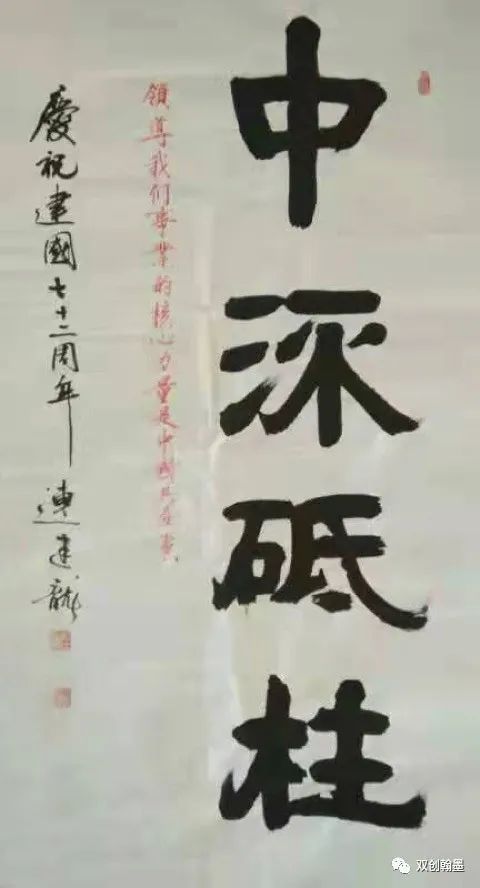 中流砥柱
領導我们事業的核心力量是中國共產黨
慶祝建國七十二周年 連建龍
双创翰墨